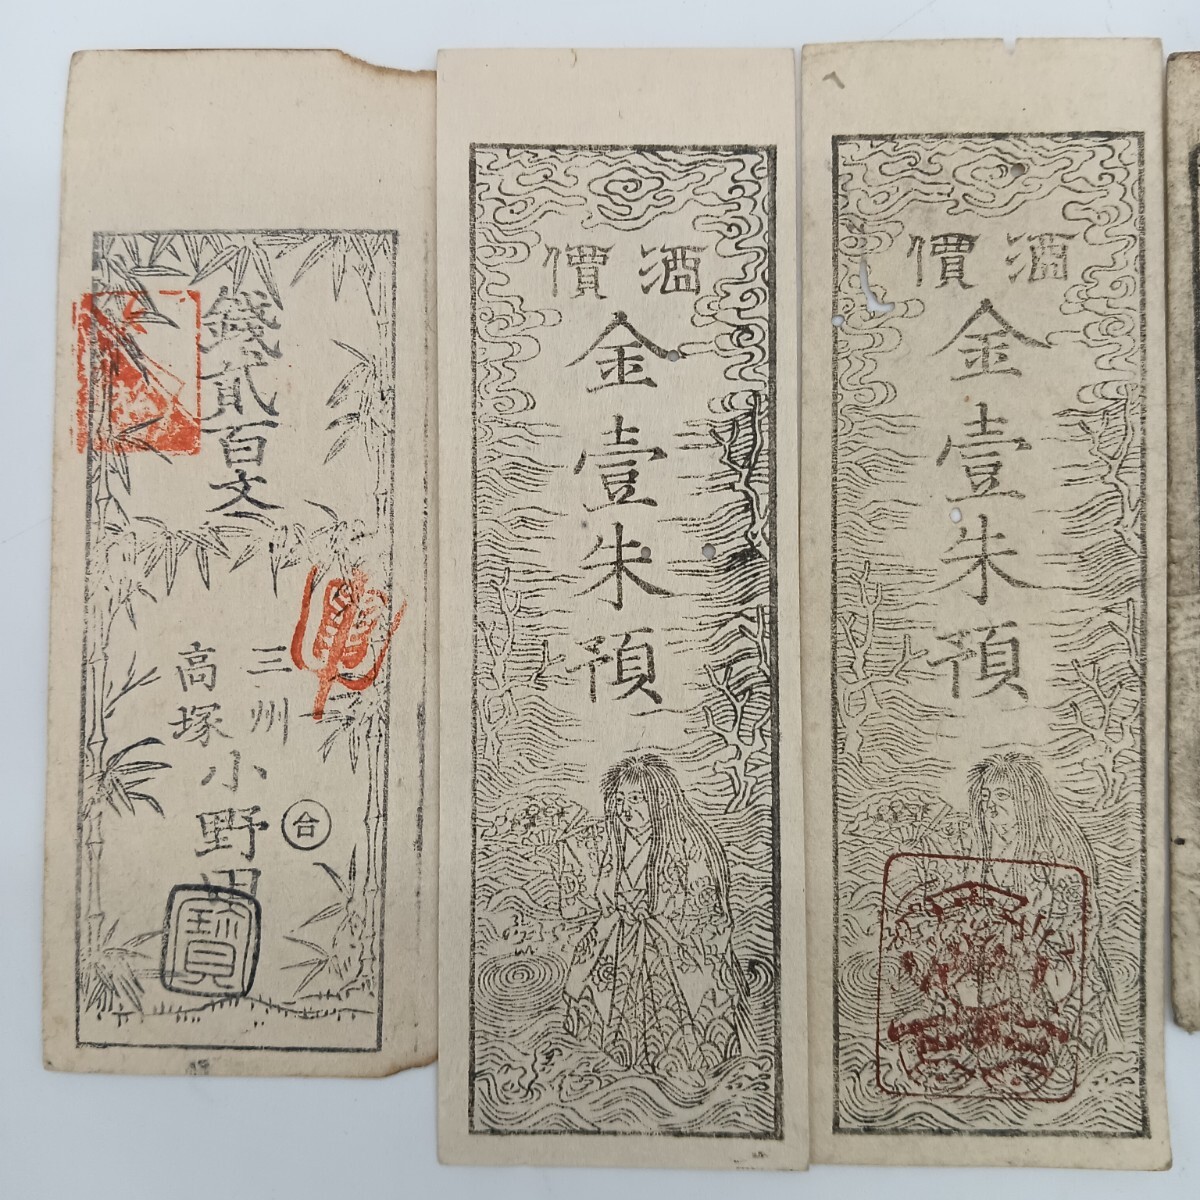 錢貳百文
三州
高塚
小野田
合
寳
酒價
金壹朱預
酒價
金壹朱預